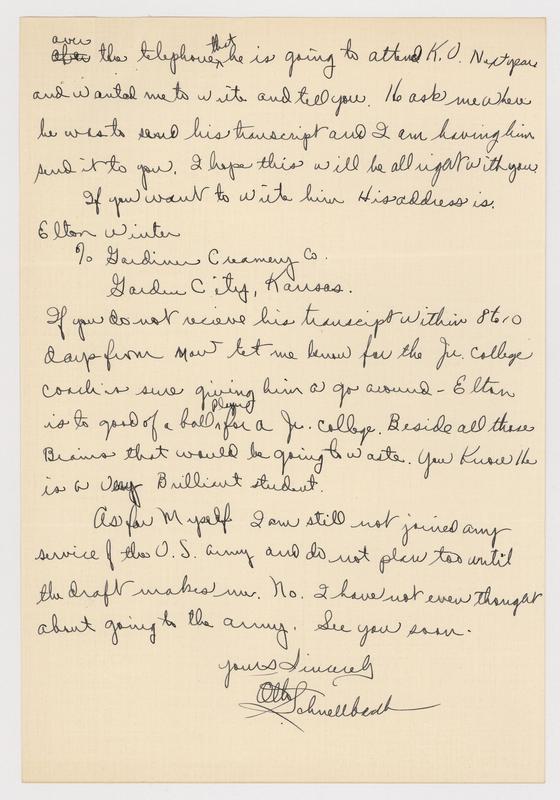 over
after the telephone, that he is going to attend K.U. Next year
and wanted me to write and tell you. He ask me where
he was to send his transcript and I am having him
send it to you. I hope this will be all right with you.
If you want to write him His address is.
Elton Winter
℅ Gardiner Creamery Co.
Garden City, Kansas.
If you do not recieve his transcript within 8 to 10
days from now let me know for the Jr. college
coach is sure giving him a go around - Elton
is to good of a ball player for a Jr. college. Beside all those
Brains that would be going to waste. You Know He
is a very Brilliant student.
As for Myself I am still not joined any
service of the U.S. army and do not plan too until
the draft makes me. No. I have not even thought
about going to the army. See you soon.
yours Sincerely
Otto Schnellbacher